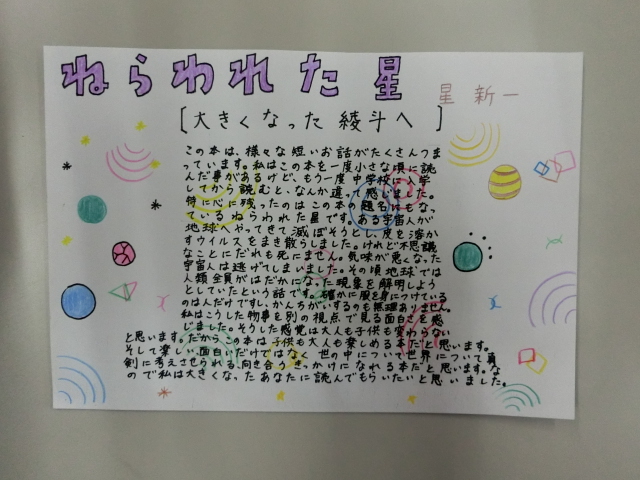 ねらわれた星
星 新一
[大きくなった綾斗へ]
この本は、様々な短いお話がたくさんつま
っています。私はこの本を一度小さな頃に読
んだ事があるけど、もう一度中学校に入学
してから読むと、なんか違って感じました。
特に心に残ったのはこの本の題名にもなっ
ているねらわれた星です。ある宇宙人が
地球へやってきて滅ぼそうとし、皮を溶か
すウイルスをまき散らしました。けれど不思議
なことにだれも死にません。気味が悪くなった
宇宙人は逃げてしまいました。その頃地球では
人類全員がはだかになった現象を解明しよう
としていたという話です。確かに服を身につけている
のは人だけですし、かんちがいするのも無理ありません。
私はこうした物事を別の視点で見る面白さを感
じました。そうした感覚は大人も子供も変わらない
と思います。だからこの本は子供も大人も楽しめる本だと思います。
そして楽しい面白いだけではなく世の中について世界について真
剣に考えさせられる、向き合うきっかけになれる本だと思います。な
ので私は大きくなったあなたに読んでもらいたいと思いました。